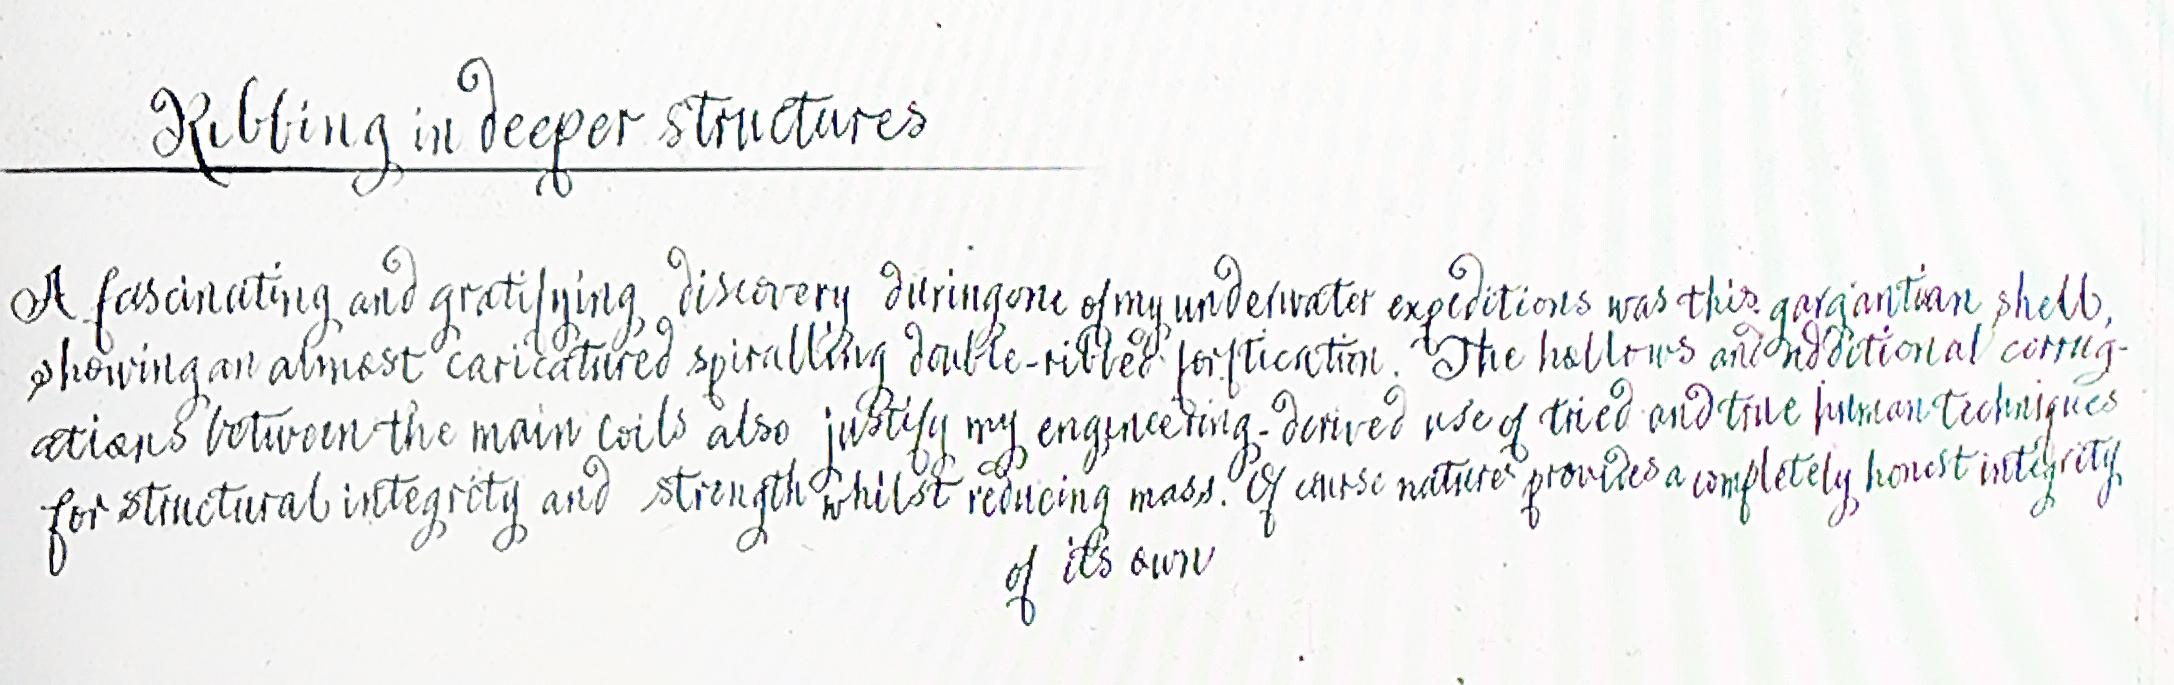 Ribbing in deeper structures
A fascinating and gratifying discovery during one of my underwater expeditions was this gargantian shell,
showing an almost caricatured spiralling double-ribbed fortification. The hollows and additional corrug-
ations between the main coils also justify my engineering-derived use of tried and true human techniques
for structural integrity and strength whilst reducing mass. Of course nature provides a completely honest integrity
of its own